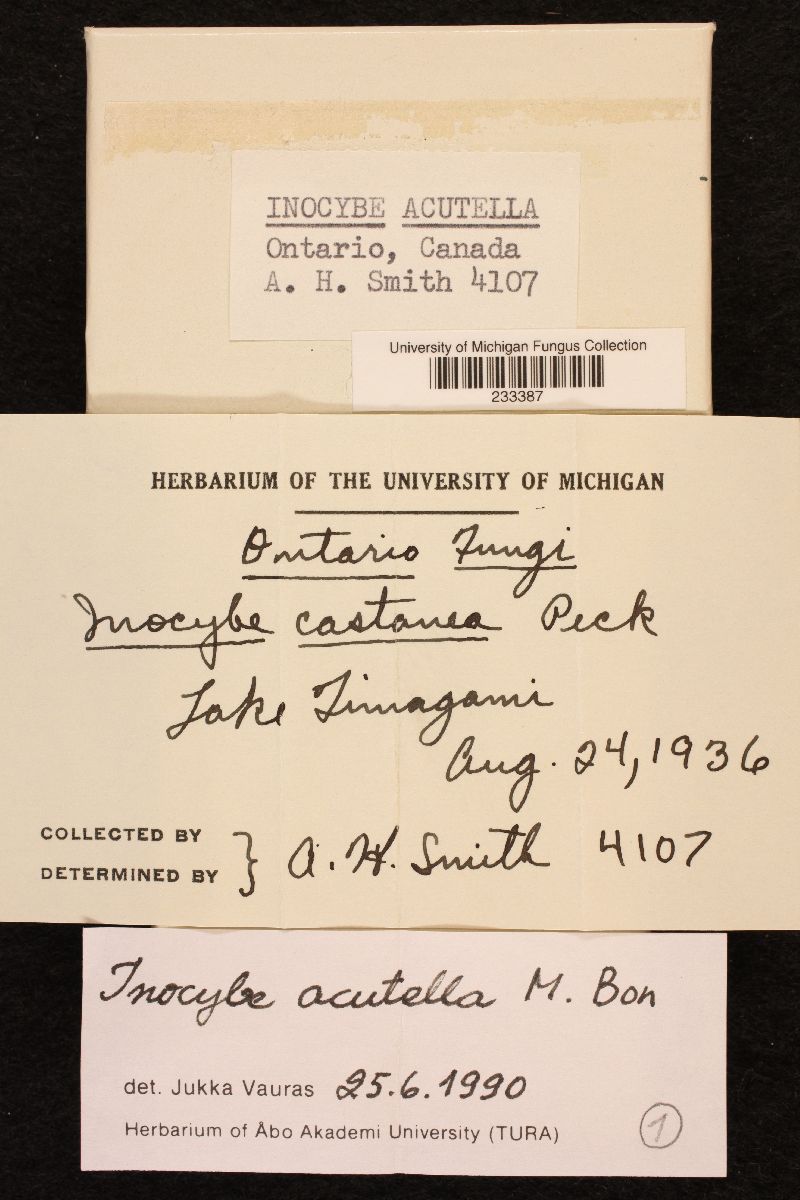 INOCYBE ACUTELLA
Ontario, Canada
A. H. Smith 4107
University of Michigan Fungus Collection
233387
HERBARIUM OF THE UNIVERSITY OF MICHIGAN
Ontario Fungi
Inocybe castanea Peck
Lake Timagami
Aug. 24, 1936
COLLECTED BY
DETERMINED BY } A. H. Smith 4107
Inocybe acutella M. Bon
det. Jukka Vauras 25.6.1990
Herbarium of Åbo Akademi University (TURA)
1